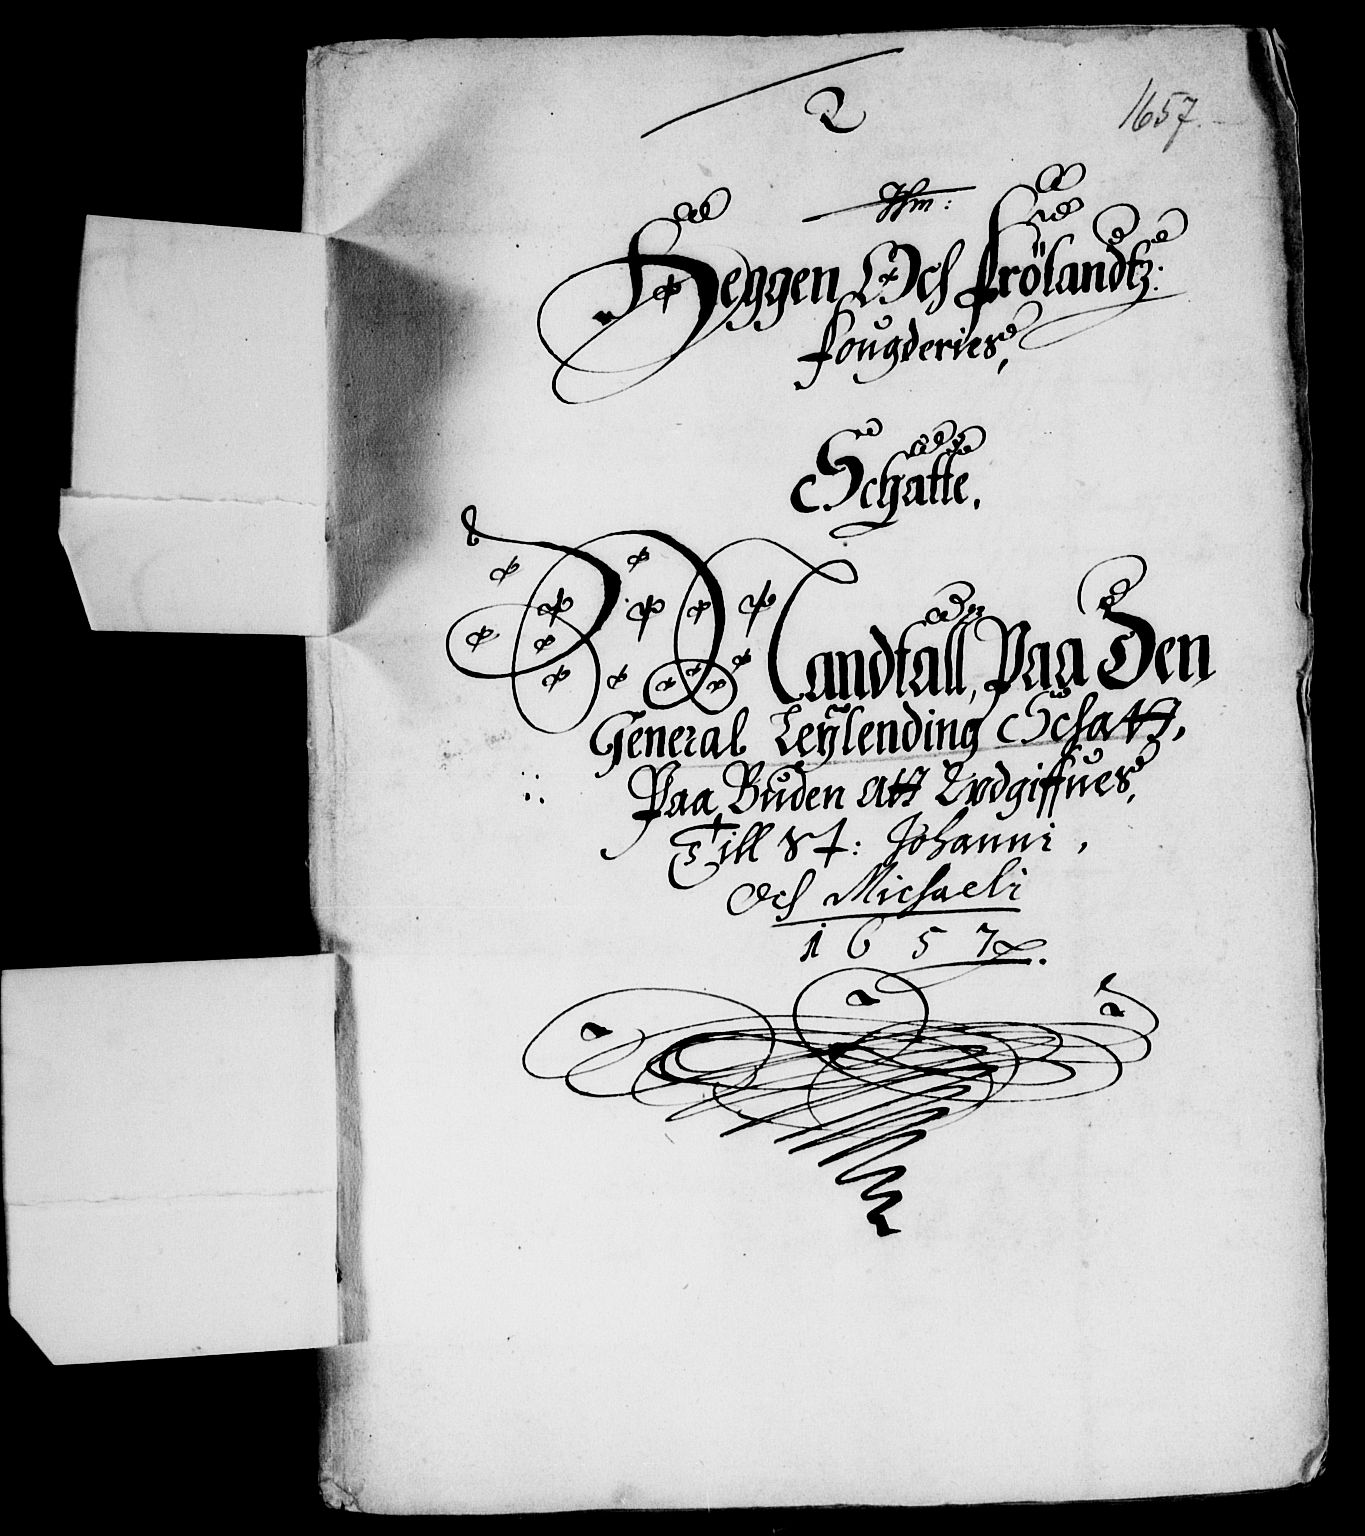 2
1657.
Heggen Och Frölandtz:
fougderies,
Schatte.
Mandtall, Paa Den
General Leylending Schatt,
Paa Buden Att Vdgiffues,
Till St: Johanni,
Och Michaeli
1657.